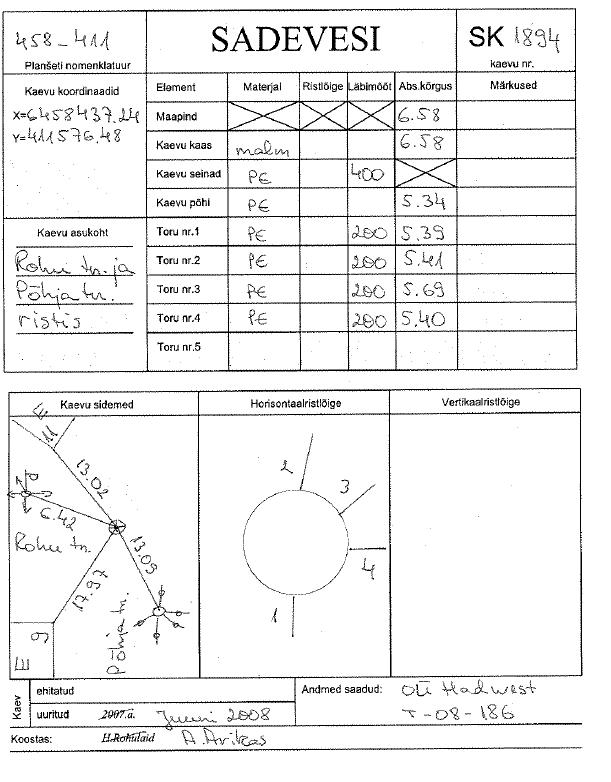 458-411
SADEVESI
SK 1894
Planšeti nomenklatuur
kaevu nr.
Kaevu koordinaadid
X=6458437.24
Y=411576.48
Element Materjal Ristlõige Läbimõõt Abs.kõrgus Märkused
Maapind 6.58
Kaevu kaas malm 6.58
Kaevu seinad PE 400
Kaevu põhi PE 5.34
Kaevu asukoht
Rohu tn. ja
Põhja tn.
ristis
Toru nr.1 PE 200 5.39
Toru nr.2 PE 200 5.41
Toru nr.3 PE 200 5.69
Toru nr.4 PE 200 5.40
Toru nr.5
Kaevu sidemed Horisontaalristlõige Vertikaalristlõige
E
11
13.02
6.42
Rohu tn.
13.09
17.97
Põhja tn.
9
E
2
3
4
1
Kaev
ehitatud
uuritud 2007.a. Juuni 2008
Andmed saadud: OÜ Hadwest
T-08-186
Koostas: H.Rohulaid A. Arikas